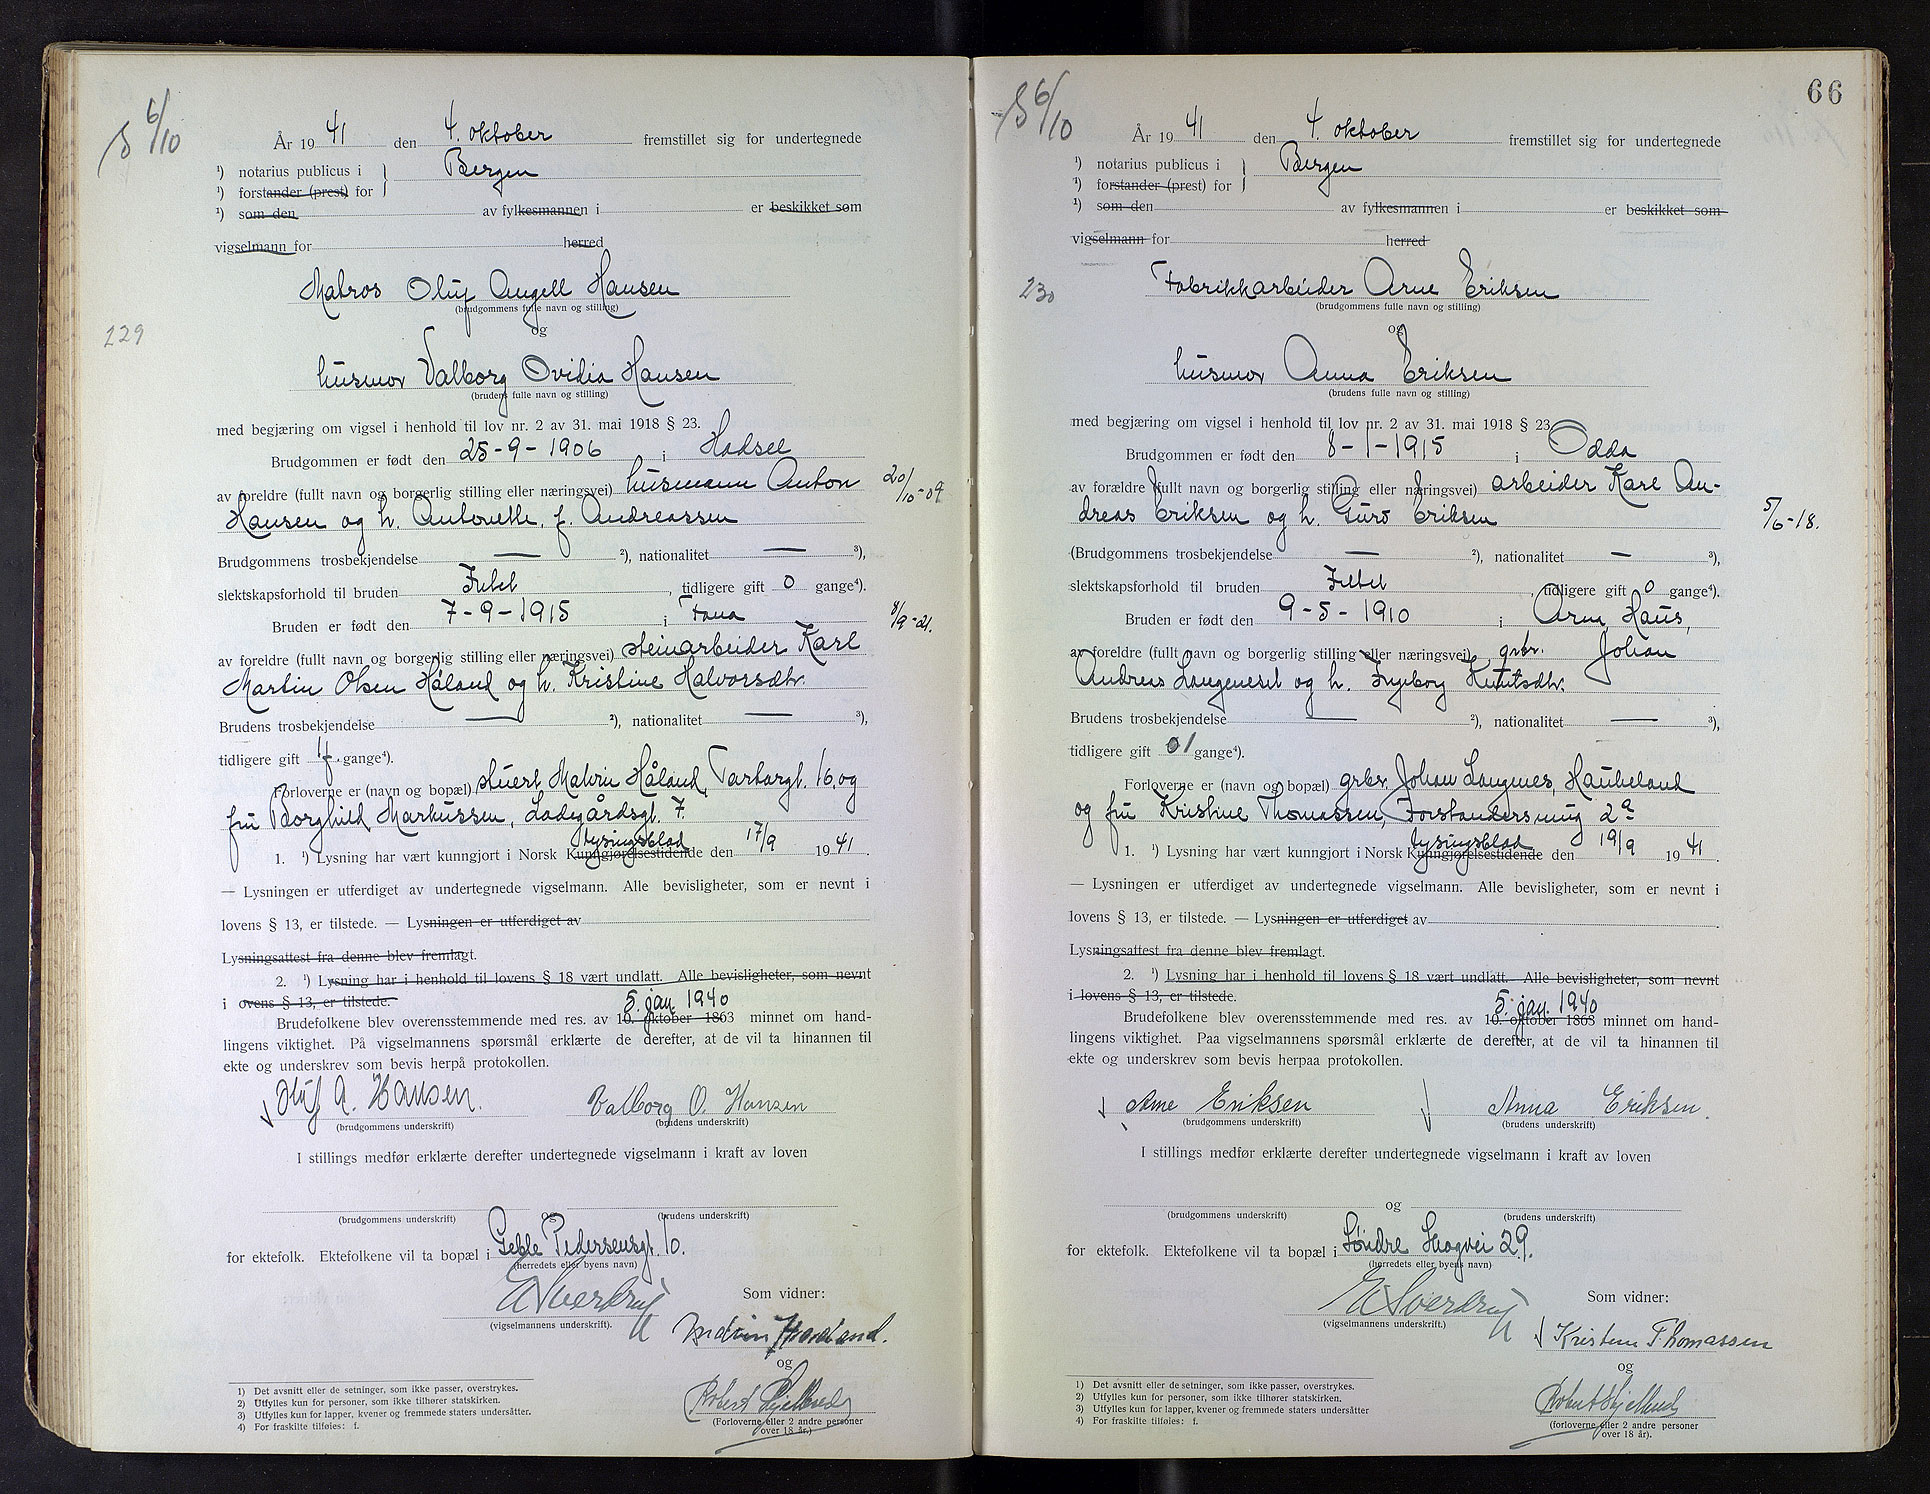 6/10
År 19 41 den 4. oktober fremstillet sig for undertegnede
¹) notarius publicus i } Bergen
¹) forstander (prest) for
¹) som den av fylkesmannen i er beskikket som
vigselmann for herred
Matros Oluf Angell Hansen
(brudgommens fulle navn og stilling)
og
229
husmor Valborg Ovidia Hansen
(brudens fulle navn og stilling)
med begjæring om vigsel i henhold til lov nr. 2 av 31. mai 1918 § 23.
Brudgommen er født den 25-9-1906 i Hadsel
av foreldre (fullt navn og borgerlig stilling eller næringsvei) husmann Anton 20/10-09
Hansen og h. Antonette, f. Andreassen
Brudgommens trosbekjendelse — ²), nationalitet — ³),
slektskapsforhold til bruden Intet, tidligere gift 0 gange⁴).
Bruden er født den 7-9-1915 i Fana 8/9-21.
av foreldre (fullt navn og borgerlig stilling eller næringsvei) steinarbeider Karl
Martin Olsen Håland og h. Kristine Halvorsdtr.
Brudens trosbekjendelse — ²), nationalitet — ³),
tidligere gift 1f. gange⁴).
Forloverne er (navn og bopæl) stuert Malvin Håland, Tartargt. 16, og
fru Borghild Markussen, Ladegårdsgt. 7.
lysingsblad
1. ¹) Lysning har vært kunngjort i Norsk Kunngjørelsestidende den 17/9 19 41.
— Lysningen er utferdiget av undertegnede vigselmann. Alle bevisligheter, som er nevnt i
lovens § 13, er tilstede. — Lysningen er utferdiget av
Lysningsattest fra denne blev fremlagt.
2. ¹) Lysning har i henhold til lovens § 18 vært undlatt. Alle bevisligheter, som nevnt
i ovens § 13, er tilstede. 5. jan. 1940
Brudefolkene blev overensstemmende med res. av 10. oktober 1863 minnet om hand-
lingens viktighet. På vigselmannens spørsmål erklærte de derefter, at de vil ta hinannen til
ekte og underskrev som bevis herpå protokollen.
Oluf A. Hansen. Valborg O. Hansen
(brudgommens underskrift) (brudens underskrift)
I stillings medfør erklærte derefter undertegnede vigselmann i kraft av loven
og
(brudgommens underskrift) (brudens underskrift)
for ektefolk. Ektefolkene vil ta bopæl i Geble Pedersensgt. 10.
(herredets eller byens navn)
E Sverdrup Som vidner:
(vigselmannens underskrift).
Malvin Haaland.
og
Robert Skjelbred
(Forloverne eller 2 andre personer
over 18 år.)
1) Det avsnitt eller de setninger, som ikke passer, overstrykes.
2) Utfylles kun for personer, som ikke tilhører statskirken.
3) Utfylles kun for lapper, kvener og fremmede staters undersåtter.
4) For fraskilte tilføies: f.
66
6/10
År 19 41 den 4. oktober fremstillet sig for undertegnede
¹) notarius publicus i } Bergen
¹) forstander (prest) for
¹) som den av fylkesmannen i er beskikket som
vigselmann for herred
230
Fabrikkarbeider Arne Eriksen
(brudgommens fulle navn og stilling)
og
husmor Anna Eriksen
(brudens fulle navn og stilling)
med begjæring om vigsel i henhold til lov nr. 2 av 31. mai 1918 § 23.
Brudgommen er født den 8-1-1915 i Odda
av forældre (fullt navn og borgerlig stilling eller næringsvei) arbeider Karl An-
dreas Eriksen og h. Guro Eriksen 5/6-18.
(Brudgommens trosbekjendelse — ²), nationalitet — ³),
slektskapsforhold til bruden Intet, tidligere gift 0 gange⁴).
Bruden er født den 9-5-1910 i Arna, Haus,
av foreldre (fullt navn og borgerlig stilling eller næringsvei) grbr. Johan
Andreas Langeneset og h. Ingeborg Knutsdtr.
Brudens trosbekjendelse — ²), nationalitet — ³),
tidligere gift 01 gange⁴).
Forloverne er (navn og bopæl) grbr. Johan Langnes, Haukeland
og fru Kristine Thomassen, Forstandersmug 2a
lysingsblad
1. ¹) Lysning har vært kunngjort i Norsk Kunngjørelsestidende den 19/9 19 41.
— Lysningen er utferdiget av undertegnede vigselmann. Alle bevisligheter, som er nevnt i
lovens § 13, er tilstede. — Lysningen er utferdiget av
Lysningsattest fra denne blev fremlagt.
2. ¹) Lysning har i henhold til lovens § 18 vært undlatt. Alle bevisligheter, som nevnt
i lovens § 13, er tilstede. 5. jan. 1940
Brudefolkene blev overensstemmende med res. av 10. oktober 1863 minnet om hand-
lingens viktighet. Paa vigselmannens spørsmål erklærte de derefter, at de vil ta hinannen til
ekte og underskrev som bevis herpaa protokollen.
Arne Eriksen Anna Eriksen.
(brudgommens underskrift) (brudens underskrift)
I stillings medfør erklærte derefter undertegnede vigselmann i kraft av loven
og
(brudgommens underskrift) (brudens underskrift)
for ektefolk. Ektefolkene vil ta bopæl i Søndre Skogvei 29.
(herredets eller byens navn)
E Sverdrup Som vidner:
(vigselmannens underskrift.)
Kristine Thomassen
og
Robert Skjelbred
(forloverne eller 2 andre personer
over 18 år).
1) Det avsnitt eller de setninger, som ikke passer, overstrykes.
2) Utfylles kun for personer, som ikke tilhører statskirken.
3) Utfylles kun for lapper, kvener og fremmede staters undersåtter
4) For fraskilte tilføies: f.